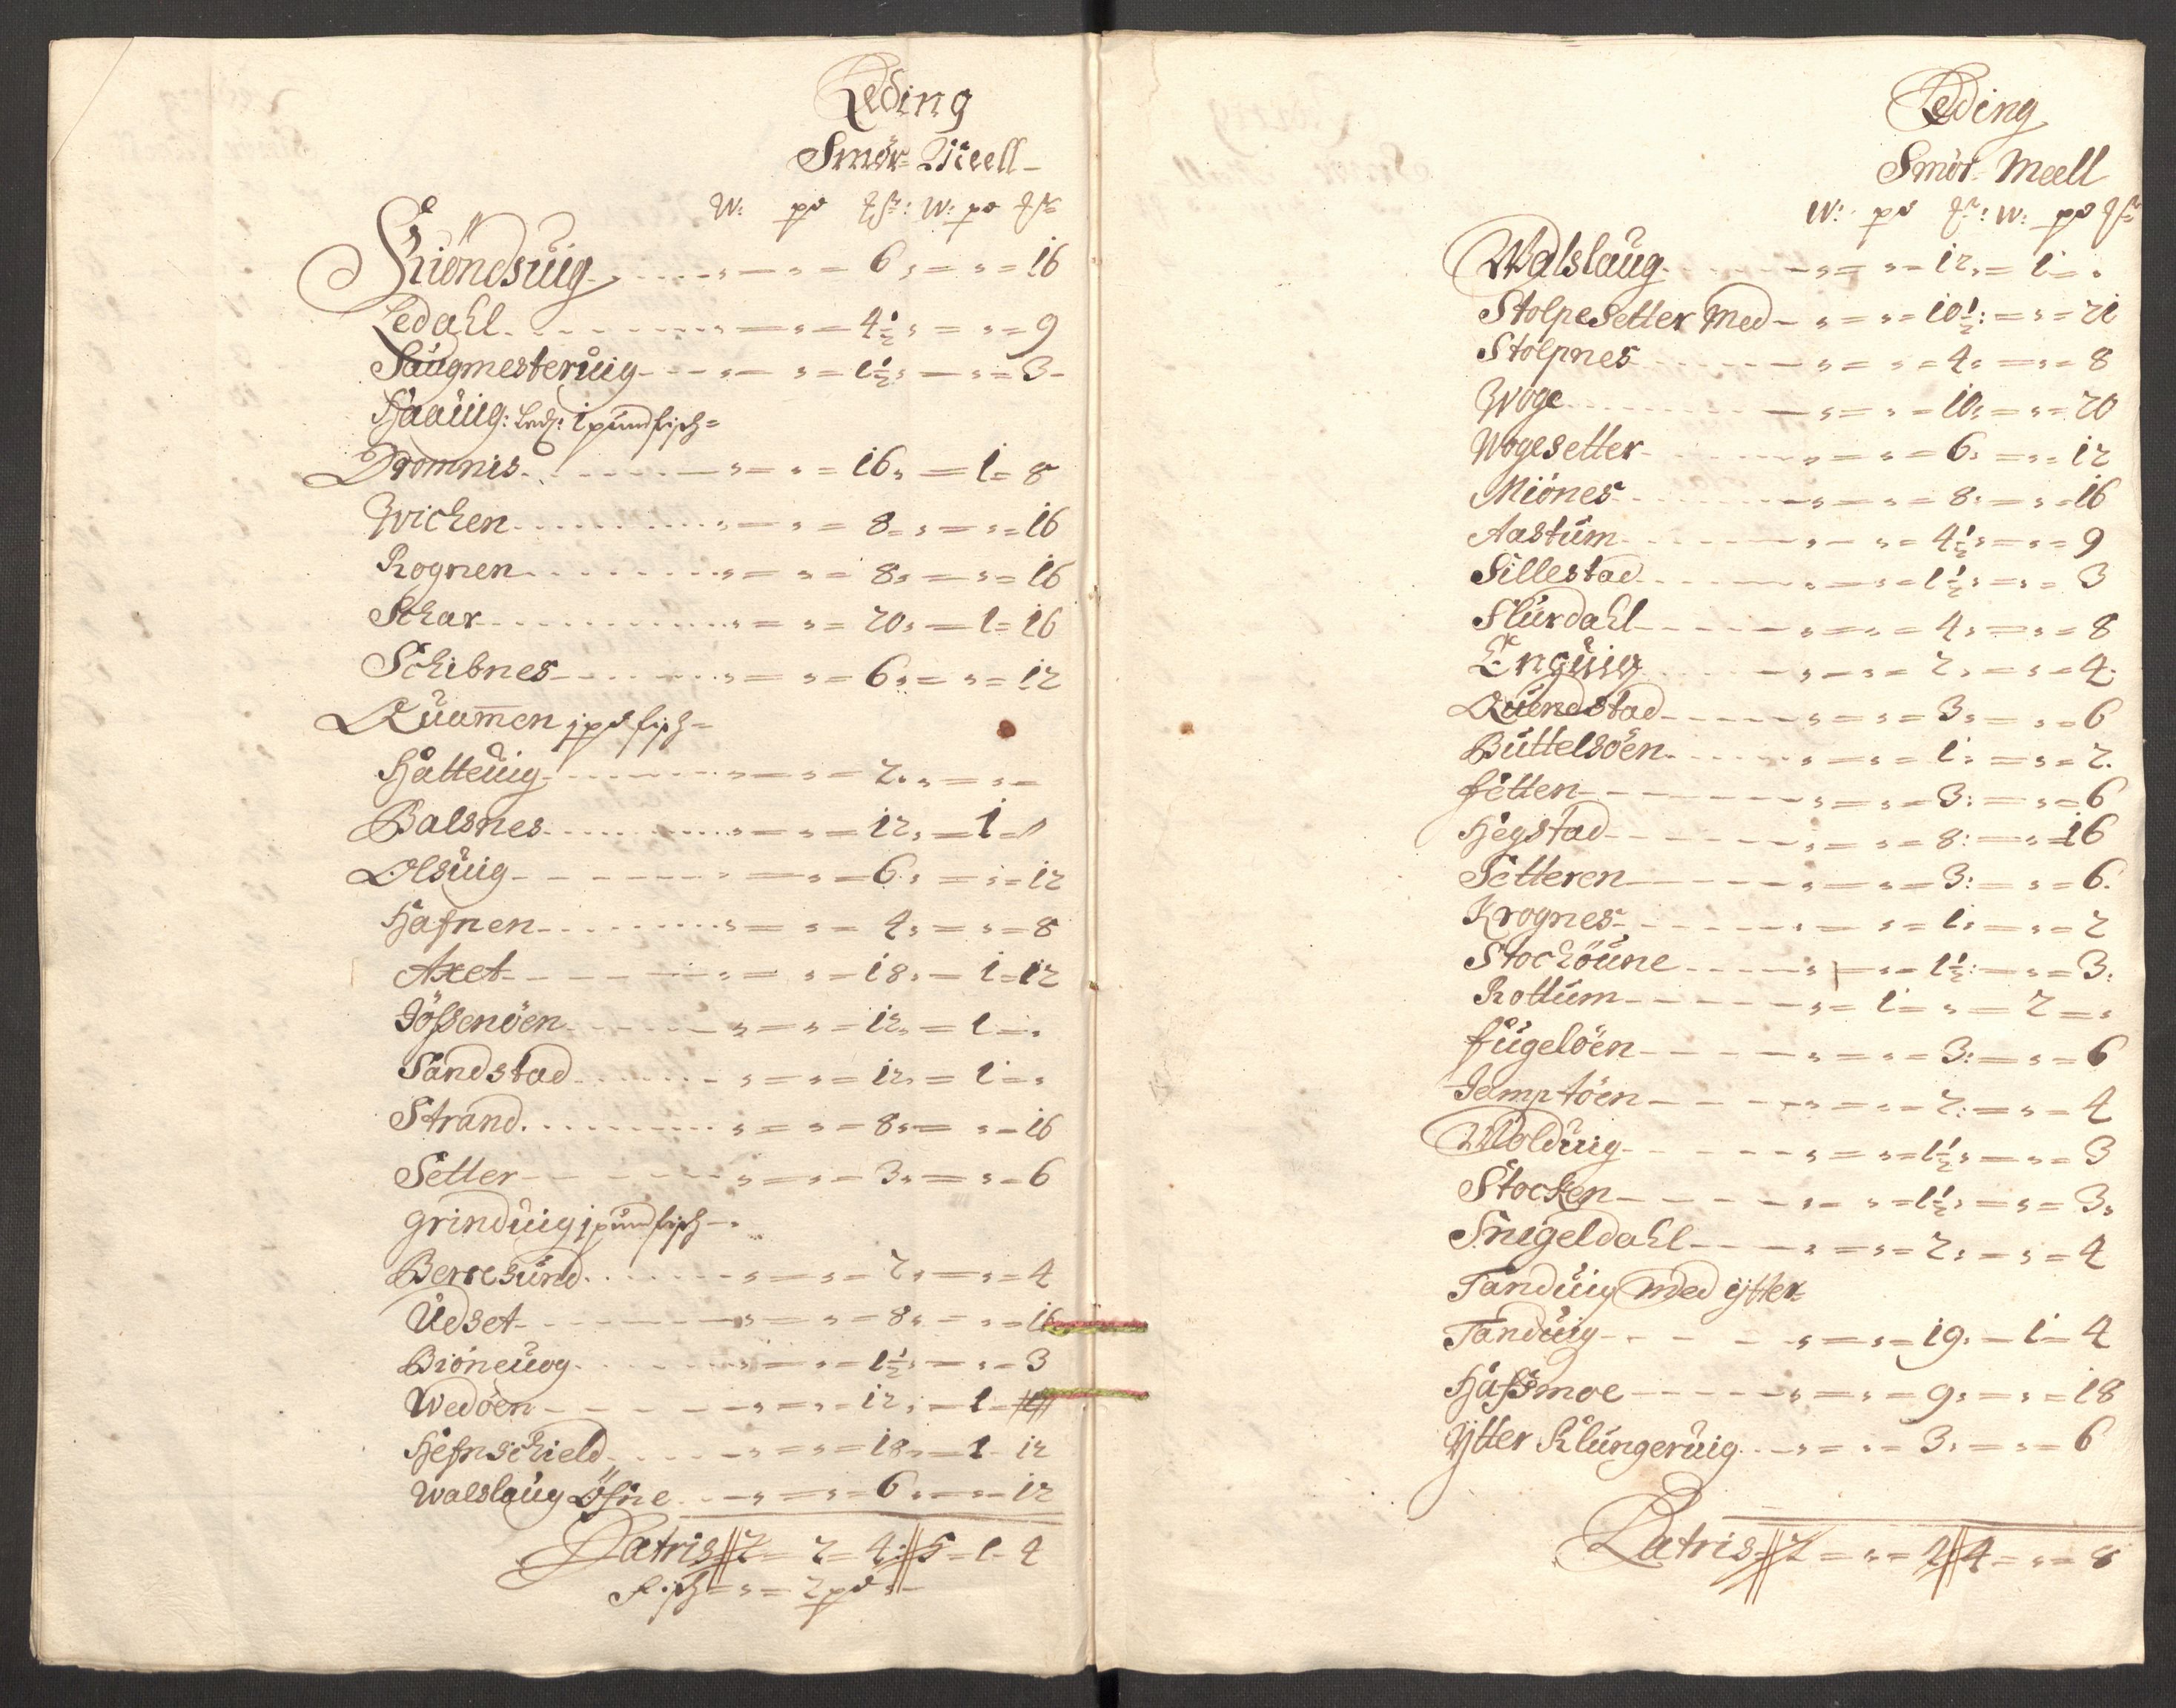 Leding
Smör- Meell-
W: pd ℔: W: pd ℔
Kiöndsuig ,, = ,, = 6 ,, = ,, = 16
Ledahl ,, = ,, = 4½ ,, = ,, = 9
Saugmesteruig ,, = ,, = 1½ ,, = ,, = 3-
Haauig: Led: 1 pund fisch=
Dromnis ,, = ,, = 16 ,, = 1 = 8
Wichen ,, = ,, = 8 ,, = ,, = 16
Rognen ,, = ,, = 8 ,, = ,, = 16
Schar ,, = ,, = 20 ,, = 1 = 16
Schibnes ,, = ,, = 6 ,, = ,, = 12
Quamen j pd fisch=
Hatteuig ,, = ,, = 2 ,, = ,, =
Balsnes ,, = ,, = 12 ,, = 1 = ,,
Olsuig ,, = ,, = 6 ,, = ,, = 12
Hafnen ,, = ,, = 4 ,, = ,, = 8
Axet ,, = ,, = 18 ,, = 1 = 12
Jössenöen ,, = ,, = 12 ,, = 1 = ,,
Sandstad ,, = ,, = 12 ,, = 1 = ,,
Strand ,, = ,, = 8 ,, = ,, = 16
Setter ,, = ,, = 3 ,, = ,, = 6
Grinduig j pund fisch-
Berresund ,, = ,, = 2 ,, = ,, = 4
Udset ,, = ,, = 8 ,, = ,, = 16
Biöneuog ,, = ,, = 1½ ,, = ,, = 3
Wedöen ,, = ,, = 12 ,, = 1
Hefnschield ,, = ,, = 18 ,, = 1 = 12
Walslaug Öfne ,, = ,, = 6 ,, = ,, = 12
Latris 2 = 2 = 4 : 5 = 1 = 4
Fisch = ,, = 2 pd ,, =
Leding
Smör- Meell
W: pd ℔: W: pd ℔
Walslaug ,, = ,, = 12 ,, = 1 = ,,
Stolpesetter Med ,, = ,, = 10½ : = ,, = 21
Stolpnes ,, = ,, = 4 ,, = ,, = 8
Woge ,, = ,, = 10 ,, = ,, = 20
Wogesetter ,, = ,, = 6 ,, = ,, = 12
Miönes ,, = ,, = 8 ,, = ,, = 16
Aastum ,, = ,, = 4½ ,, = ,, = 9
Sillestad ,, = ,, = 1½ ,, = ,, = 3
Slurdahl ,, = ,, = 4 ,, = ,, = 8
Enguig ,, = ,, = 2 ,, = ,, = 4
Quendstad ,, = ,, = 3 ,, = ,, = 6
Buttelsöen ,, = ,, = 1 ,, = ,, = 2
fetten ,, = ,, = 3 : = ,, = 6
Hegstad ,, = ,, = 8 : = ,, = 16
Setteren ,, = ,, = 3 : = ,, = 6
Krognes ,, = ,, = 1 ,, = ,, = 2
Stochöune ,, = ,, = 1½ : = ,, = 3
Rottum ,, = 1 = ,, = 2 = ,,
fugelöen ,, = ,, = 3 : = ,, = 6
Jemptöen ,, = ,, = 2 : = ,, = 4
Wolduig ,, = ,, = 1½ ,, = ,, = 3
Stocken ,, = ,, = 1½ ,, = ,, = 3
Snigeldahl ,, = ,, = 2 ,, = ,, = 4
Tanduig med ÿtter=
Tanduig ,, = ,, = 19 ,, = 1 = 4
Hassmoe ,, = ,, = 9 ,, = ,, = 18
Ÿtter Klungeruig ,, = ,, = 3 ,, = ,, = 6
Latris 2 = ,, = 2 4 = ,, = 8